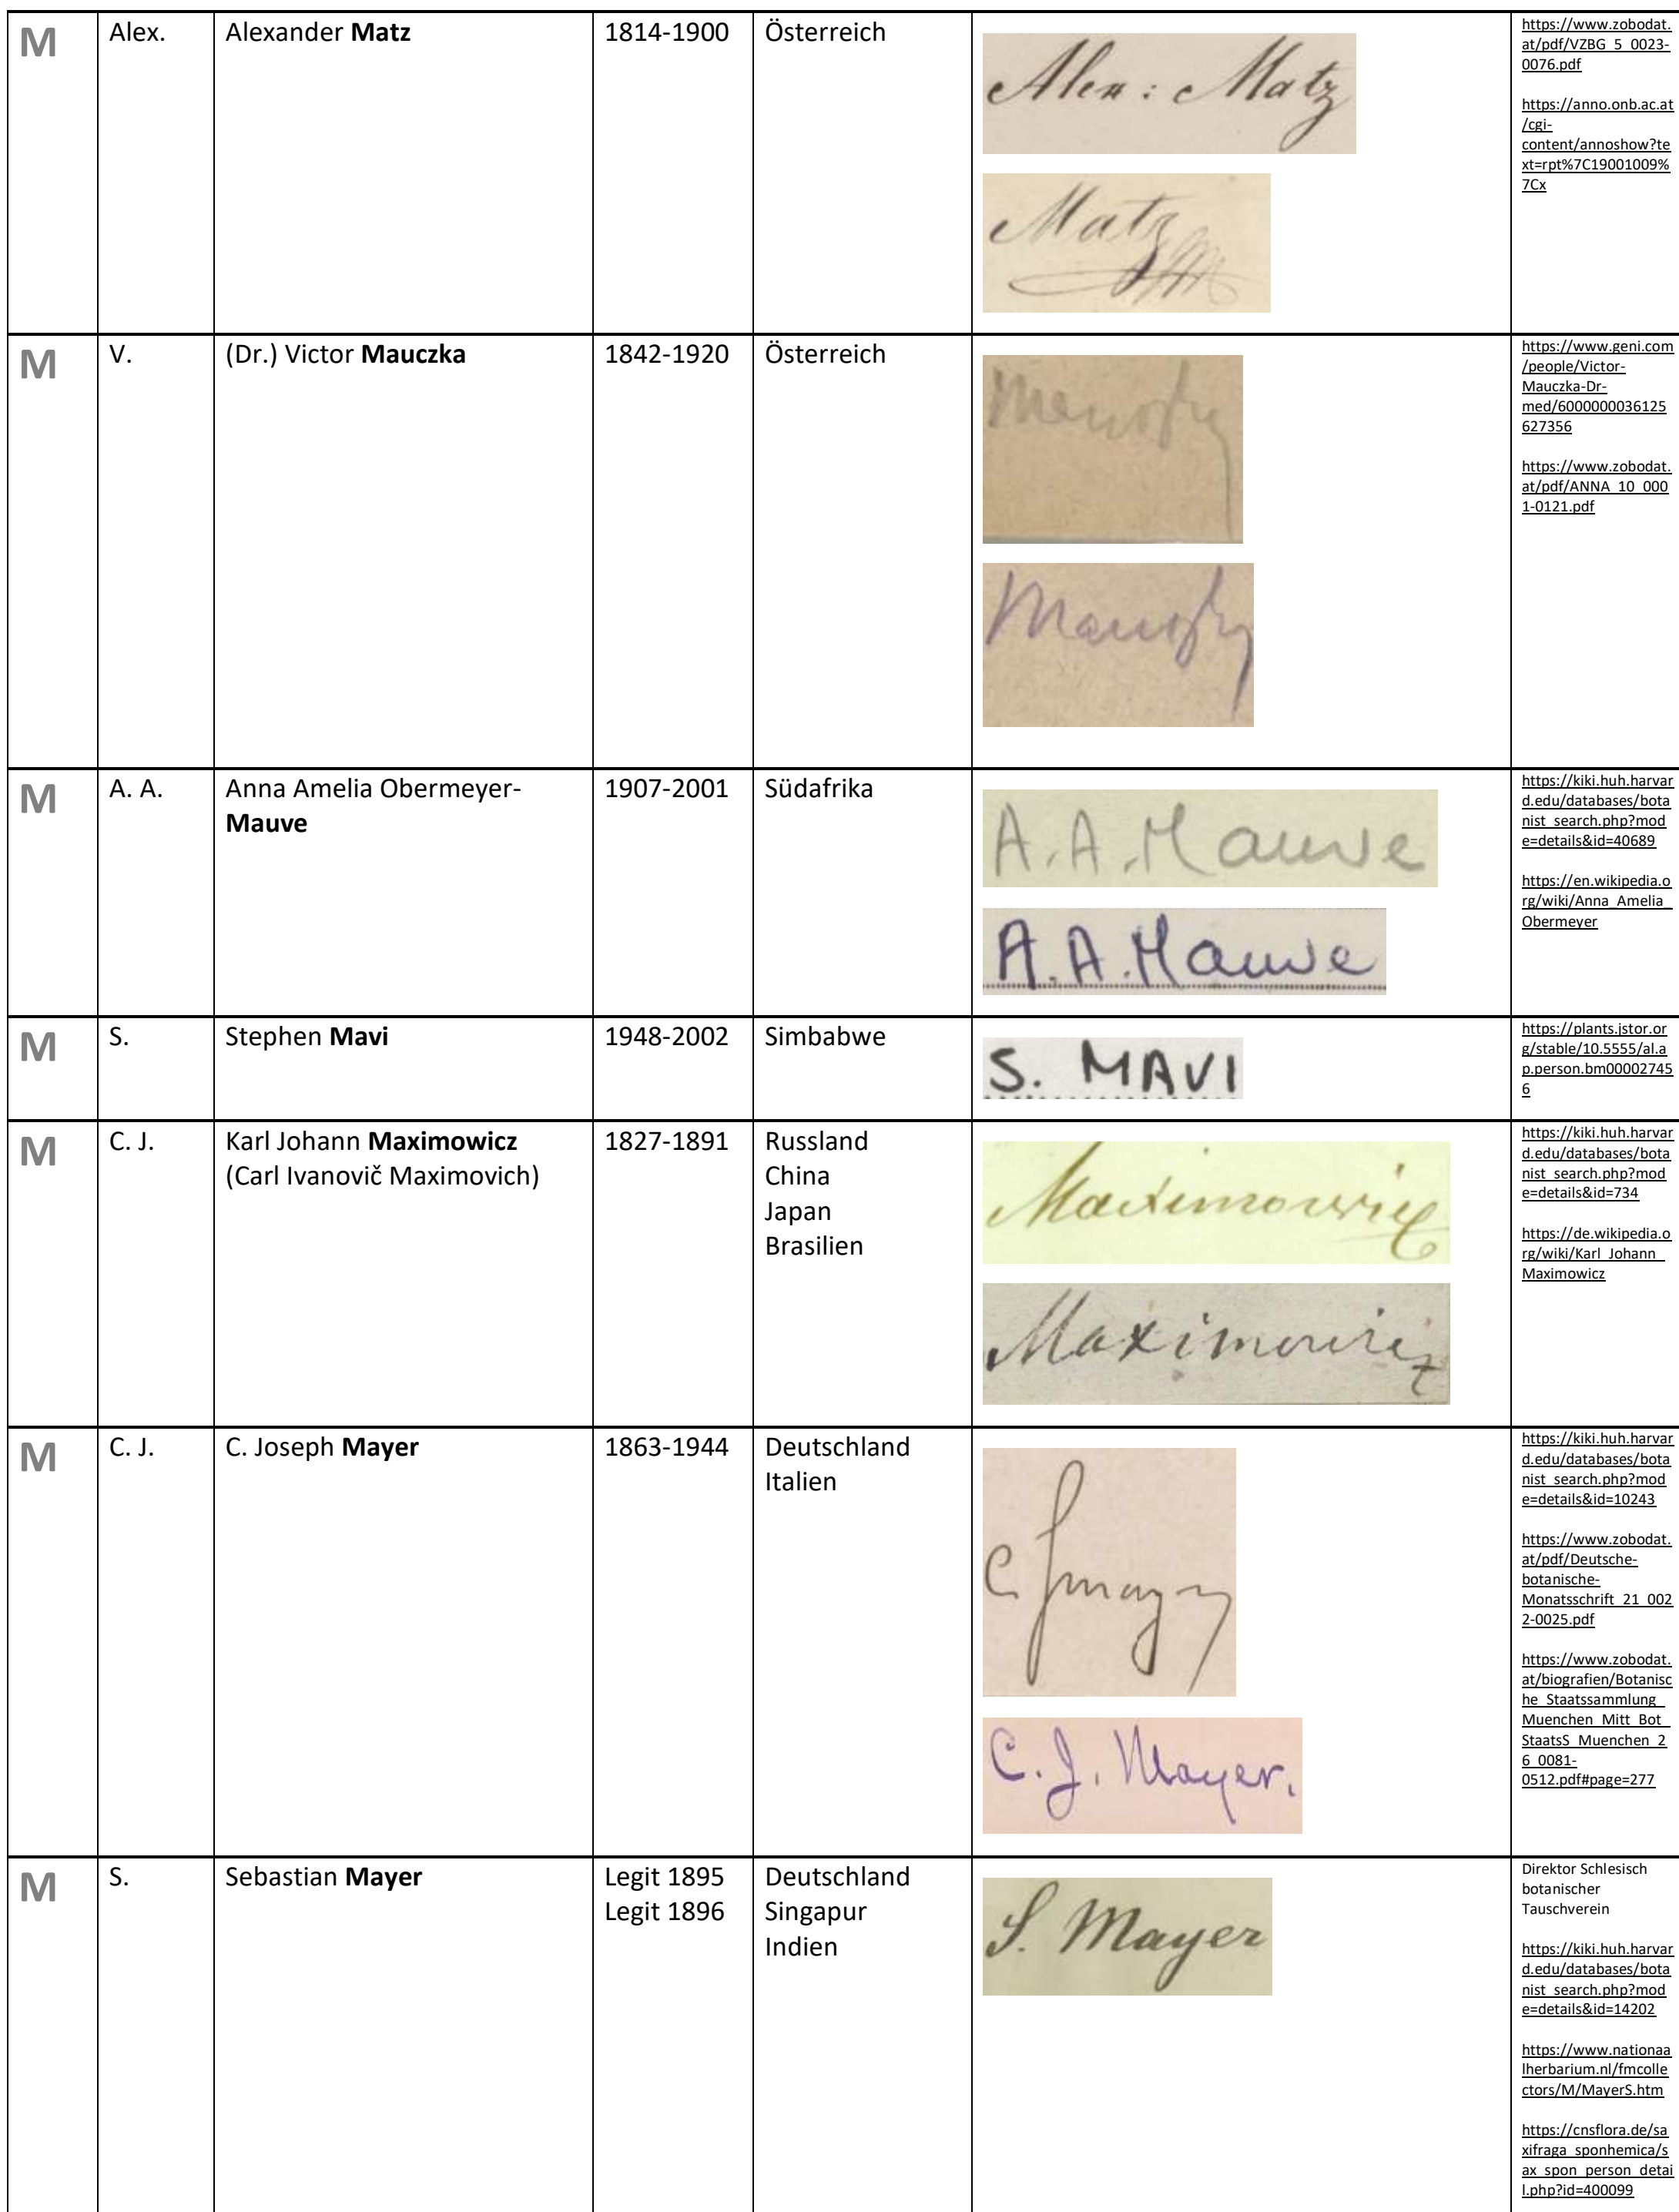 M
Alex.
Alexander Matz
1814-1900
Österreich
Alex: Matz
Matz
https://www.zobodat.
at/pdf/VZBG_5_0023-
0076.pdf
https://anno.onb.ac.at
/cgi-
content/annoshow?te
xt=rpt%7C19001009%
7Cx
M
V.
(Dr.) Victor Mauczka
1842-1920
Österreich
https://www.geni.com
/people/Victor-
Mauczka-Dr-
med/6000000036125
627356
https://www.zobodat.
at/pdf/ANNA_10_000
1-0121.pdf
M
A. A.
Anna Amelia Obermeyer-
Mauve
1907-2001
Südafrika
A. A. Mauve
A. A. Mauve
https://kiki.huh.harvar
d.edu/databases/bota
nist_search.php?mod
e=details&id=40689
https://en.wikipedia.o
rg/wiki/Anna_Amelia_
Obermeyer
M
S.
Stephen Mavi
1948-2002
Simbabwe
S. MAVI
https://plants.jstor.or
g/stable/10.5555/al.a
p.person.bm00002745
6
M
C. J.
Karl Johann Maximowicz
(Carl Ivanovič Maximovich)
1827-1891
Russland
China
Japan
Brasilien
Maximowicz
Maximowicz
https://kiki.huh.harvar
d.edu/databases/bota
nist_search.php?mod
e=details&id=734
https://de.wikipedia.o
rg/wiki/Karl_Johann_
Maximowicz
M
C. J.
C. Joseph Mayer
1863-1944
Deutschland
Italien
C J Mayer
C. J. Mayer.
https://kiki.huh.harvar
d.edu/databases/bota
nist_search.php?mod
e=details&id=10243
https://www.zobodat.
at/pdf/Deutsche-
botanische-
Monatsschrift_21_002
2-0025.pdf
https://www.zobodat.
at/biografien/Botanisc
he_Staatssammlung_
Muenchen_Mitt_Bot_
StaatsS_Muenchen_2
6_0081-
0512.pdf#page=277
M
S.
Sebastian Mayer
Legit 1895
Legit 1896
Deutschland
Singapur
Indien
S. Mayer
Direktor Schlesisch
botanischer
Tauschverein
https://kiki.huh.harvar
d.edu/databases/bota
nist_search.php?mod
e=details&id=14202
https://www.nationaa
lherbarium.nl/fmcolle
ctors/M/MayerS.htm
https://cnsflora.de/sa
xifraga_sponhemica/s
ax_spon_person_detai
l.php?id=400099